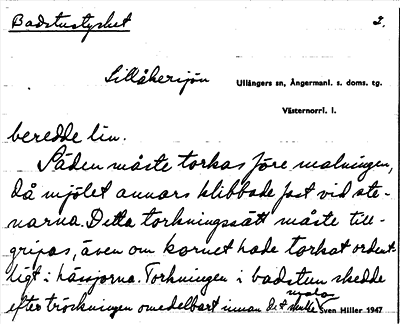 Badstustycket 2.
Lillåkerijön
Ullångers sn, Ångermanl. s. doms. tg.
Västernorrl. l.
beredde lin.
Säden måste torkas före malningen,
då mjölet annars klibbade fast vid ste-
narna. Detta torkningssätt måste till-
gripas, även om kornet hade torkat ordent-
ligt i hässjorna. Torkningen i badstun skedde
efter tröskningen omedelbart innan det skulle malas
Sven Hiller 1947